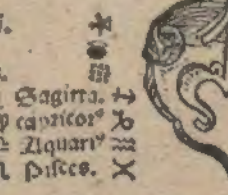 Sagitta. ♐
capricor⁹ ♑
Aquari⁹ ♒
Pisces. ♓